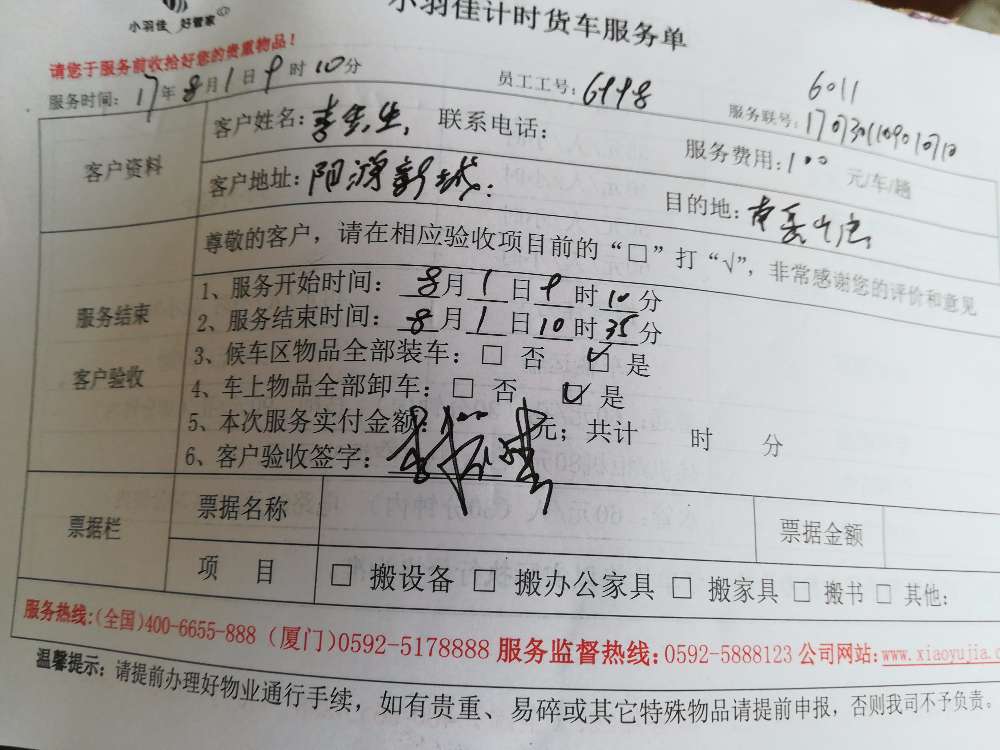 小羽佳 好管家
小羽佳计时货车服务单
请您于服务前收拾好您的贵重物品！
6011
服务时间：17年8月1日9时10分 员工工号：6998 服务联号：
客户资料
客户姓名： 联系电话： 服务费用：100 元/车/趟
客户地址：阳源新城 目的地：
服务结束
客户验收
尊敬的客户，请在相应验收项目前的“□”打“√”，非常感谢您的评价和意见
1、服务开始时间：8月1日9时10分
2、服务结束时间：8月1日10时35分
3、候车区物品全部装车：□ 否 ☑ 是
4、车上物品全部卸车：□ 否 ☑ 是
5、本次服务实付金额：100元；共计 时 分
6、客户验收签字：
票据栏
票据名称 票据金额
项 目 □ 搬设备 □ 搬办公家具 □ 搬家具 □ 搬书 □ 其他：
服务热线：(全国)400-6655-888（厦门)0592-5178888 服务监督热线：0592-5888123 公司网站：www.xiaoyujia.c
温馨提示：请提前办理好物业通行手续，如有贵重、易碎或其它特殊物品请提前申报，否则我司不予负责。